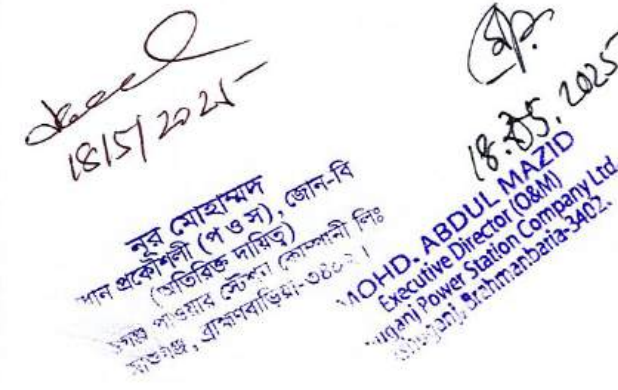 18/5/2025
নূর মোহাম্মদ
প্রকৌশলী (প ও স), জোন-বি
(অতিরিক্ত দায়িত্ব)
পাওয়ার স্টেশন কোম্পানী লিঃ
ব্রাহ্মণবাড়িয়া-৩৪০২।
18.05.2025
MOHD. ABDUL MAZID
Executive Director (O&M)
Power Station Company Ltd.
Brahmanbaria-3402.